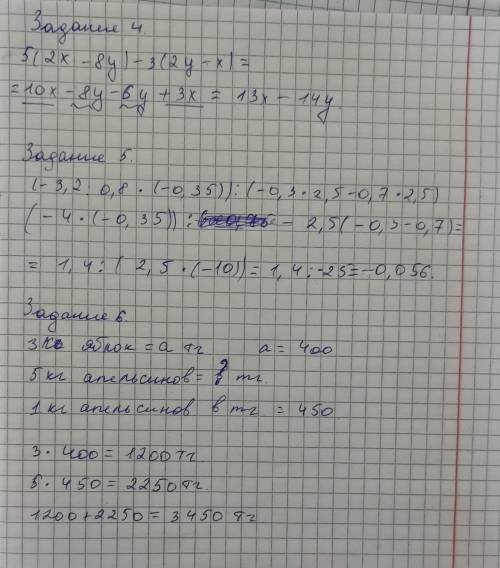 Задание 4.
5(2x - 8y) - 3(2y - x) =
= 10x - 8y - 6y + 3x = 13x - 14y.
Задание 5.
(- 3,2 : 0,8 · (-0,35)) : (-0,3 · 2,5 - 0,7 · 2,5)
(- 4 · (-0,35)) : - 2,5(-0,3-0,7)=
= 1,4 : ( 2,5 · (-10)) = 1,4 : -25 = -0,056.
Задание 6.
3кг яблок = а тг а = 400
5 кг апельсинов = ? тг
1 кг апельсинов в тг = 450
3 · 400 = 1200 тг
5 · 450 = 2250 тг.
1200 + 2250 = 3450 тг